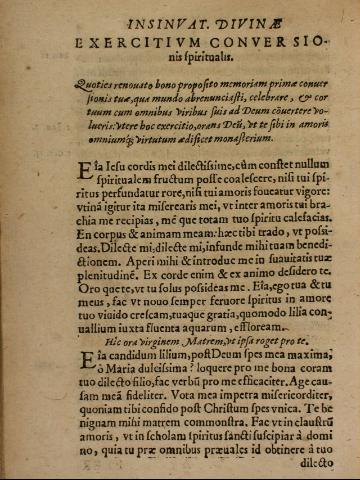 INSINVAT. DIVINÆ
EXERCITIVM CONVERSIO-
nis spiritualis.
Quoties renouato bono proposito memoriam primæ conuer
sionis tuæ, qua mundo abrenunciasti, celebrare, & cor
tuum cum omnibus viribus suis ad Deum cōuertere vo-
lueris: vtere hoc exercitio, orans Deū, vt te sibi in amoris
omniumq́; virtutum ædificet monasterium.
EIa Iesu cordis mei dilectissime, cùm constet nullum
spiritualem fructum posse coalescere, nisi tui spi-
ritus perfundatur rore, nisi tui amoris foueatur vigore:
vtinā igitur ita miserearis mei, vt inter amoris tui bra-
chia me recipias, mé que totam tuo spiritu calefacias.
En corpus & animam meam: hæc tibi trado, vt possi-
deas. Dilecte mi, dilecte mi, infunde mihi tuam benedi-
ctionem. Aperi mihi & introduc me in suauitatis tuæ
plenitudinē. Ex corde enim & ex animo desidero te.
Oro que te, vt tu solus possideas me. Eia, ego tua & tu
meus, fac vt nouo semper feruore spiritus in amore
tuo viuido crescam, tuaque gratia, quomodo lilia con-
uallium iuxta fluenta aquarum, effloream.
Hîc ora virginem Matrem, vt ipsa roget pro te.
EIa candidum lilium, post Deum spes mea maxima,
ô Maria dulcissima? loquere pro me bona coram
tuo dilecto filio, fac verbū pro me efficaciter. Age cau-
sam meā fideliter. Vota mea impetra misericorditer,
quoniam tibi confido post Christum spes vnica. Te be
nignam mihi matrem commonstra. Fac vt in claustrū
amoris, vt in scholam spiritus sancti suscipiar à domi
no, quia tu præ omnibus præuales id obtinere à tuo
dilecto